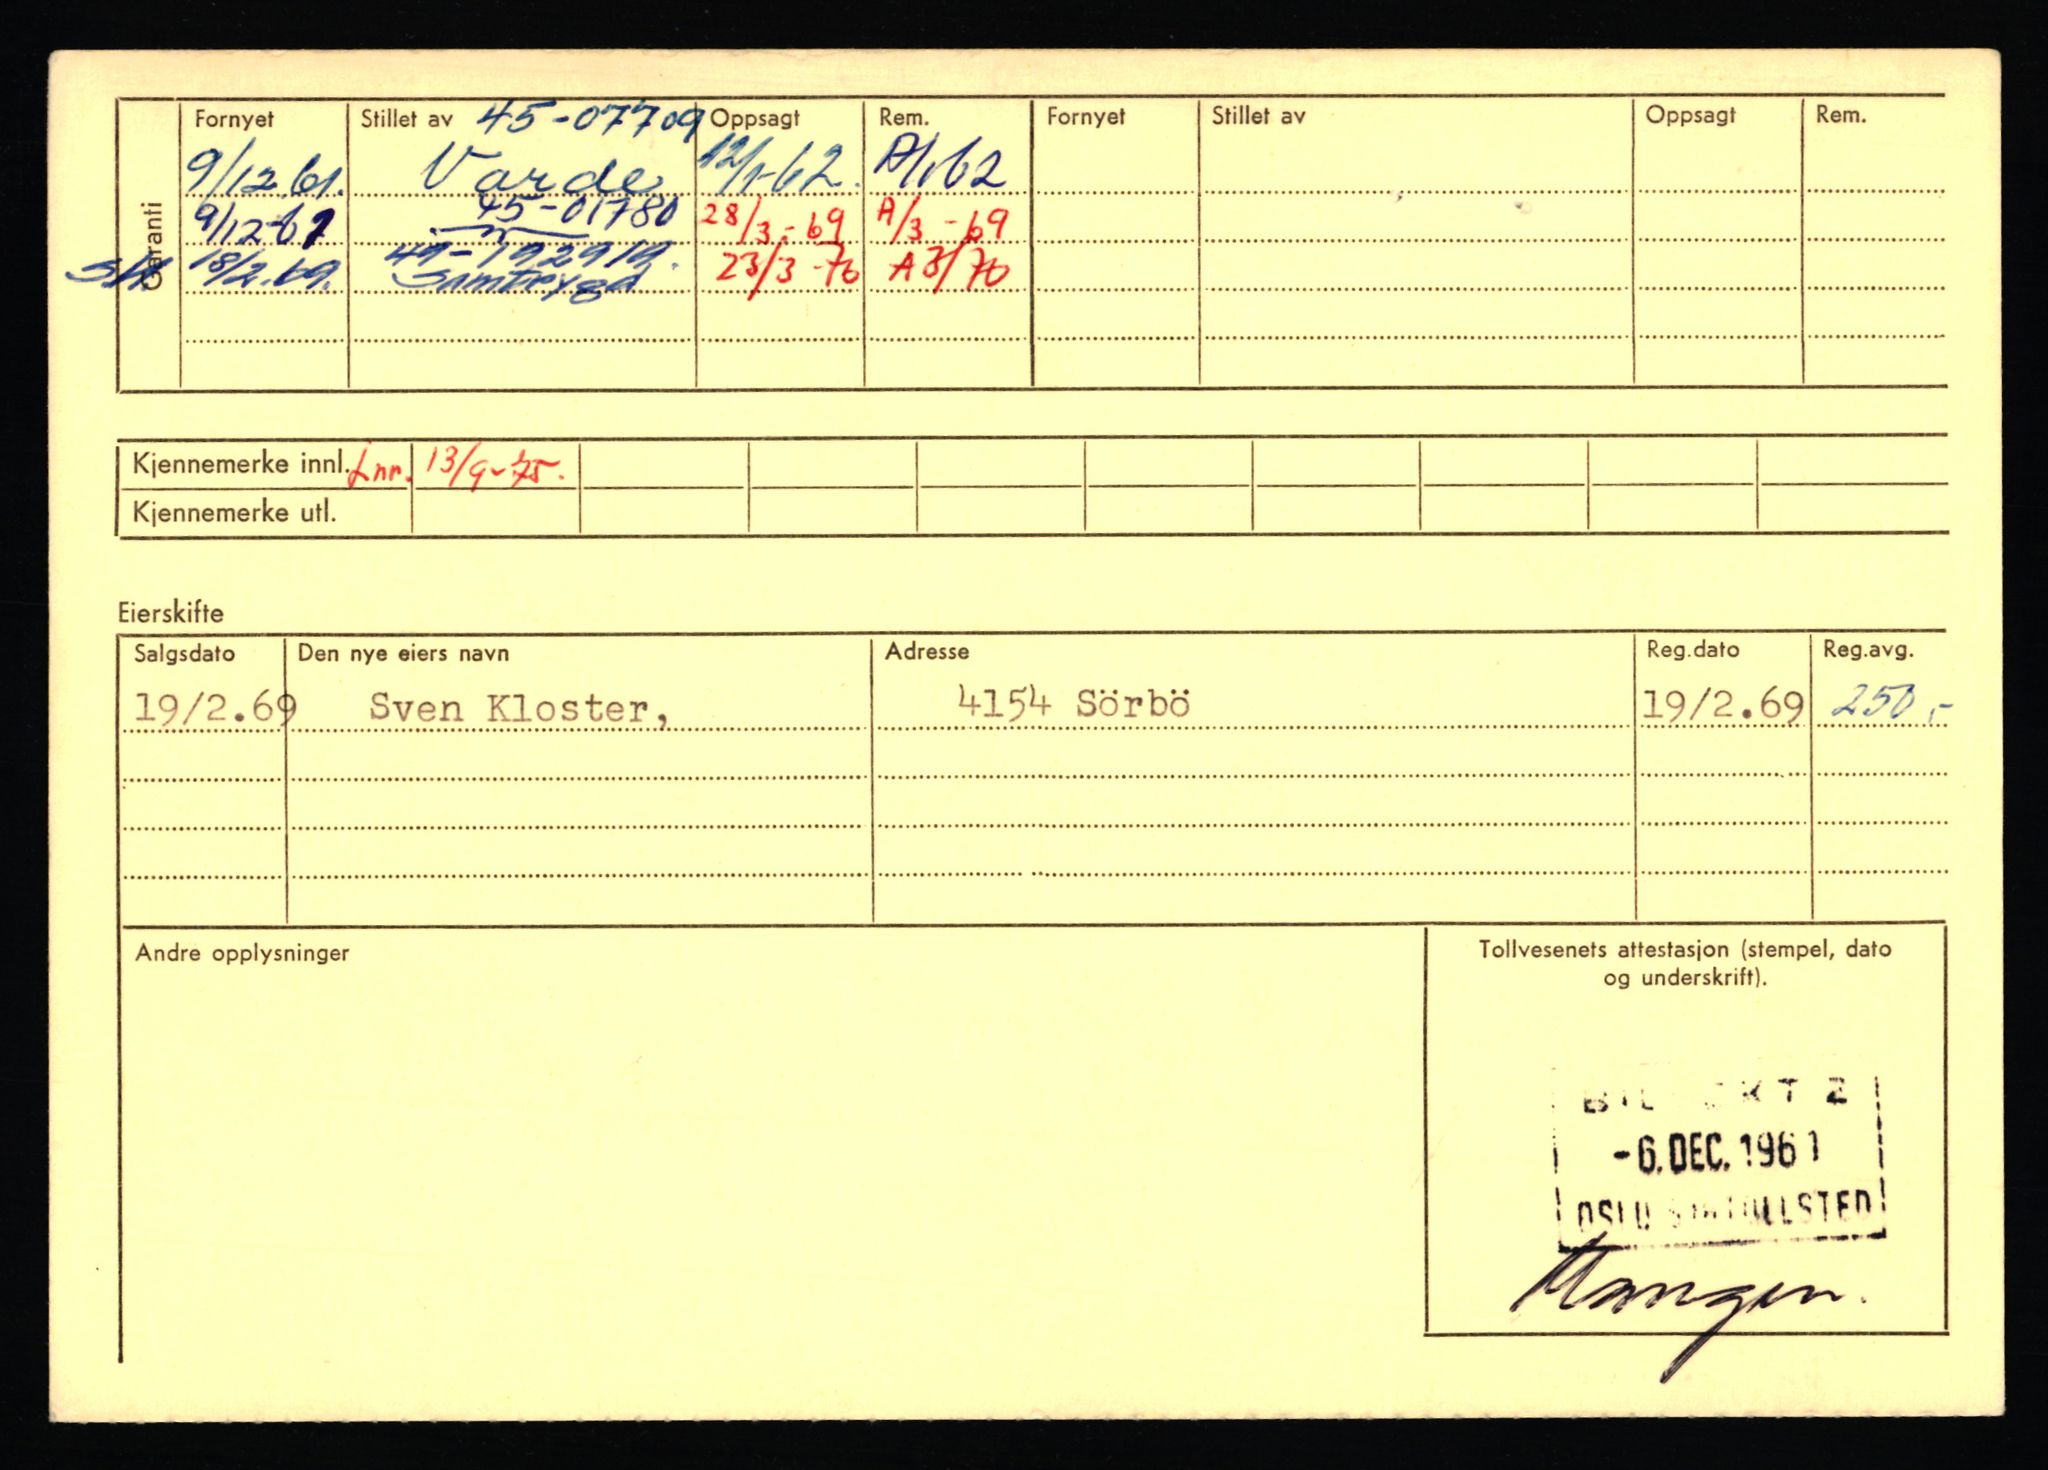 Garanti
Fornyet Stillet av 45-07709 Oppsagt Rem. Fornyet Stillet av Oppsagt Rem.
9/12.61. Varde 12/1-62. A/1.62
9/12-61 45-01780 28/3.-69 A/3-69
18/2.69. 49-192919. 23/3-70 A3/70
Samtrygd
Kjennemerke innl. Lnr. 13/9-75.
Kjennemerke utl.
Eierskifte
Salgsdato Den nye eiers navn Adresse Reg.dato Reg.avg.
19/2.69 Sven Kloster, 4154 Sörbö 19/2.69 250,-
Andre opplysninger
Tollvesenets attestasjon (stempel, dato
og underskrift).
-6. DEC. 1961
OSLO